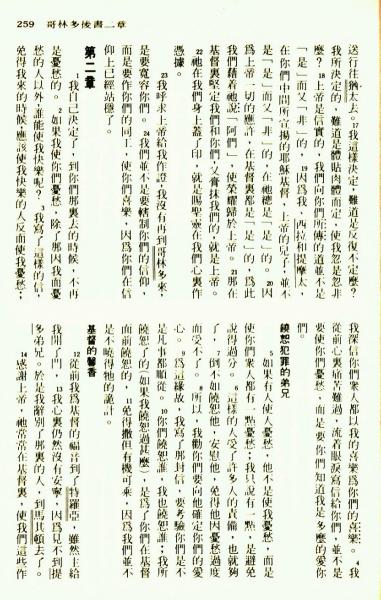 259　哥林多後書二章
送行往猶太去。17我這樣決定，難道是反復不定麼？
我所決定的，難道是體貼肉體而定，使我忽是忽非
麼？18上帝是信實的，我們向你們所傳的道並不是
「是」而又「非」的。19因爲我，西拉和提摩太，
在你們中間所宣揚的耶穌基督，上帝的兒子，並不
是「是」而又「非」的，在祂總是「是」的。20因
爲上帝一切的應許，在基督裏都是「是」的，爲此
我們藉着祂說「阿們」，使榮耀歸於上帝。21那在
基督裏堅定我們和你們，又膏抹我們的，就是上帝。
22祂在我們身上蓋了印，就是賜聖靈在我們心裏作
憑據。
23我呼求上帝給我作證，我沒有再到哥林多來，
是要寬容你們。24我們並不是要轄制你們的信仰，
而是要作你們的同工，使你們喜樂，因爲你們在信
仰上已經站穩了。
第二章
1我自己決定了，到你們那裏去的時候，不再
是憂愁的。2如果我使你們憂愁，除了那因我而憂
愁的人以外，誰能使我快樂呢？3我寫了這樣的信，
免得我來的時候，應該使我快樂的人反而使我憂愁；
我深信你們衆人都以我的喜樂爲你們的喜樂。4我
從前心裏痛苦難過，流着眼淚寫信給你們，並不是
要使你們憂愁，而是要你們知道我是多麼的愛你
們。
饒恕犯罪的弟兄
5如果有人使人憂愁，他不是使我憂愁，而是
使你們衆人都有一點憂愁；我只說有一點，是避免
說得過分。6這樣的人受了許多人的責備，也就夠
了，7倒不如饒恕他，安慰他，免得他因憂愁過度
而受不了。8所以，我勸你們要向他確定你們的愛
心。9爲這緣故，我寫了那封信，要考驗你們是不
是凡事都順從。10你們饒恕誰，我也饒恕誰；我所
饒恕了的（如果我饒恕過甚麼），是爲了你們在基督
面前饒恕的，11免得撒但有機可乘，因爲我們並不
是不曉得牠的詭計。
基督的馨香
12從前我爲基督的福音到了特羅亞，雖然主給
我開了門，13我心裏仍然沒有安寧，因爲見不到提
多弟兄。於是我辭別了那裏的人，到馬其頓去了。
14感謝上帝，祂常常在基督裏，使我們這些作